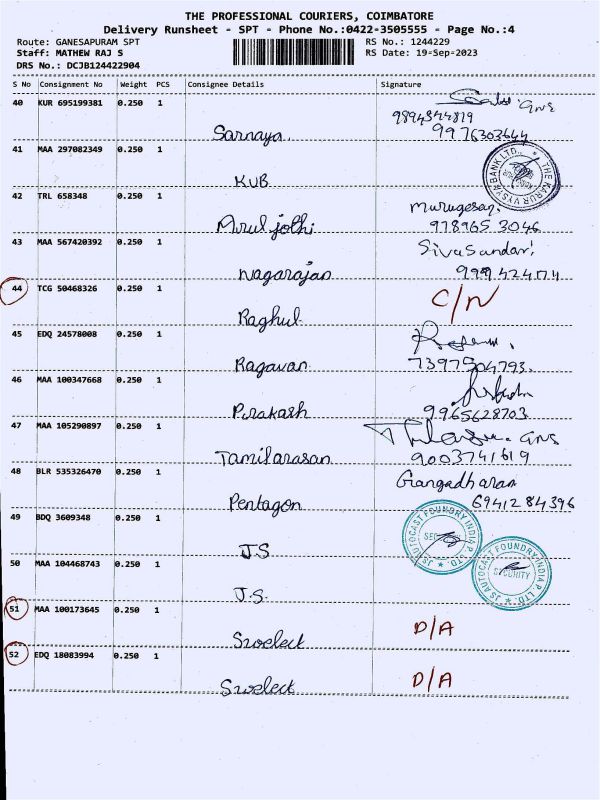 THE PROFESSIONAL COURIERS, COIMBATORE
Delivery Runsheet - SPT - Phone No.:0422-3505555 - Page No.:4
Route: GANESAPURAM SPT RS No.: 1244229
Staff: MATHEW RAJ S RS Date: 19-Sep-2023
DRS No.: DCJB124422904
S No Consignment No Weight PCS Consignee Details Signature
40 KUR 695199381 0.250 1
9894344819
Sarnaya 9976303644
41 MAA 297082349 0.250 1
THE KARUR VYSYA BANK LTD.,
KUB
42 TRL 658348 0.250 1 Murugesan
Arul jothi 978965 3046
43 MAA 567420392 0.250 1 Sivasundari
Nagarajan
44 TCG 50468326 0.250 1 C/N
Raghul
45 EDQ 24578008 0.250 1
Ragavan 7397504793
46 MAA 100347668 0.250 1
Prakash 9965628703
47 MAA 105290897 0.250 1
Tamilarasan 9003741619
48 BLR 535326470 0.250 1 Gangadharan
Pentagon 6941284396
49 BDQ 3609348 0.250 1
JS AUTOCAST FOUNDRY INDIA P. LTD.
J.S.
50 MAA 104468743 0.250 1
JS AUTOCAST FOUNDRY INDIA P. LTD.
SECURITY
J.S.
51 MAA 100173645 0.250 1 D/A
Swelect
52 EDQ 18083994 0.250 1 D/A
Swelect